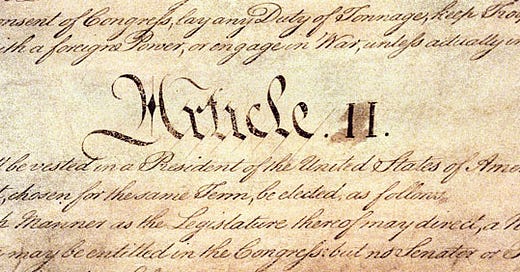 onsent of Congress, lay any Duty of Tonnage, keep Troo
ith a foreign Power, or engage in War, unless actually in
Article. II.
be vested in a President of the United States of Ame
t, chosen for the same Term, be elected, as follows
Manner as the Legislature thereof may direct, a N
may be entitled in the Congress: but no Senator or